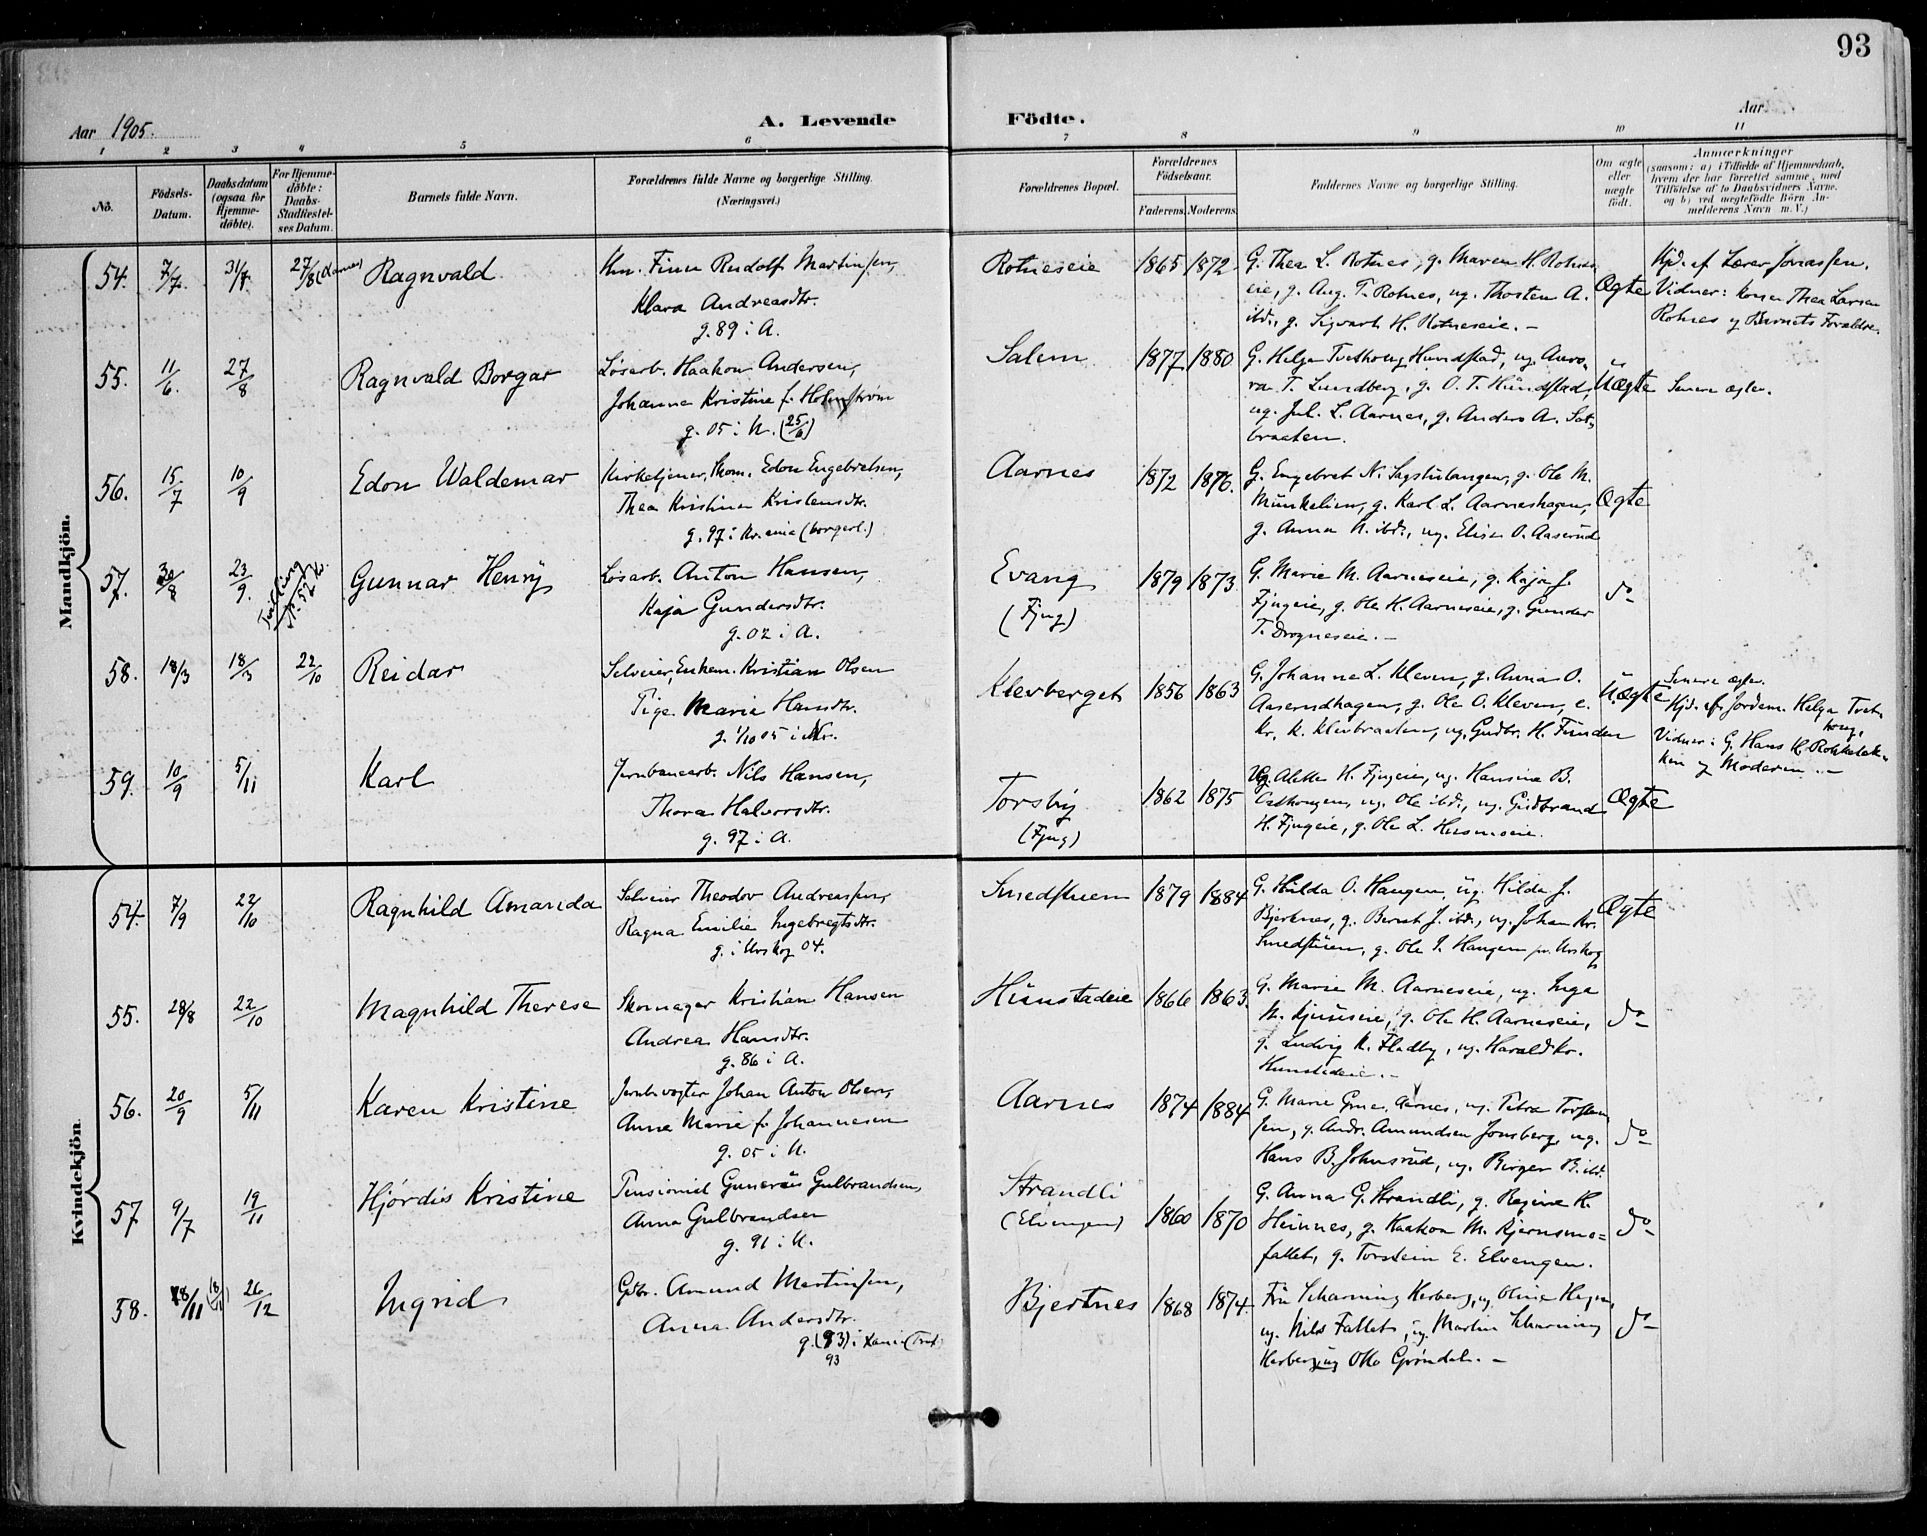 93
Aar 1905.
A. Levende Födte.
Aar
1 2 3 4 5 6 7 8 9 10 11
No.
Födsels-Datum.
Daabsdatum (ogsaa for Hjemmedöbte).
For Hjemmedöbte: Daabs-Stadfæstelses Datum.
Barnets fulde Navn.
Forældrenes fulde Navne og borgerlige Stilling. (Næringsvei.)
Forældrenes Bopæl.
Forældrenes Födselsaar.
Faderens. Moderens.
Faddernes Navne og borgerlige Stilling.
Om ægte eller uægte födt.
Anmærkninger
(saasom: a) i Tilfælde af Hjemmedaab, hvem der har forrettet samme, med Tilföielse af to Daabsvidners Navne. og b) ved uægtefödte Börn Anmelderens Navn m. V.)
Mandkjön.
54. 7/7 31/7 27/8 (Aarnes) Ragnvald
Hm. Finn Rudolf Martinsen,
Klara Andreasdtr.
g. 89 i A.
Rotneseie 1865 1872
G. Thea L. Rotnes, g. Maren H. Rotnes
eie, g. Aug. T. Rotnes, ug. Thosten A.
ibd., g. Sigvart H. Rotneseie. –
Ægte
Hjd. af Lærer Jonassen.
Vidner: Kone Thea Larsen
Rotnes og Barnets Forældre.
55. 11/6. 27/8 Ragnvald Borgar
Løsarb. Haakon Andersen,
Johanne Kristine f. Holmstrøm
g. 05 i N. (25/6)
Salem 1877 1880
G. Helga Tvethoug Hundstad, ug. Auro-
ra T. Lundberg, g. O. T. Hundstad,
ug. Jul. L. Aarnes, g. Anders A. Sæt-
braaten.
Uægte Senere ægtev.
56. 15/7 10/9 Edon Waldemar
Kirketjener, Thom. Edon Engebretsen,
Thea Kristine Kristensdtr.
g. 97 i Kr.ania (borgerl.)
Aarnes 1872 1876.
G. Engebret N. Sagstulangen, g. Ole M.
Munkelien, g. Karl L. Aarneshagen,
g. Anna N. ibd., ug. Elise O. Aaserud
Ægte
57. 30/8 23/9. Tvilling Gunnar Henry
Løsarb. Anton Hansen,
Kaja Gundersdtr.
g. 02 i A.
Evang
(Fjug)
1879 1873.
G. Marie M. Aarneseie, g. Kaja J.
Fjugeie, g. Ole H. Aarneseie, g. Gunder
T. Drogneseie. –
do
58. 18/3 18/3 22/10 Reidar
Selveier, Enkem. Kristian Olsen
Pige Marie Hansdtr.
g. 1/10 05 i N.
Klevberget 1856 1863
G. Johanne L. Kleven, g. Anna O.
Aaserudhagen, g. Ole O. Kleven, e.
Kr. K. Klevbraaten, ug. Gudbr. H. Funder
Uægte
Senere ægtev.
Hjd. af Jordem. Helga Tvet-
houg.
Vidner: G. Hans H.
og Moderen. –
59. 10/9 5/11 Karl
Jernbanearb. Nils Hansen,
Thora Halvorsdtr.
g. 97 i A.
Torsby
(Fjug)
1862 1875
Ug. Alette H. Fjugeie, ug. Hansine B.
ug. Ole ibd., ug. Gudbrand
H. Fjugeie, g. Ole L.
Ægte
Kvindekjön.
54. 7/9 22/10 Ragnhild Amanda
Selveier Theodor Andreassen,
Ragna Emilie Ingebregtsdtr.
g. i Urskog 04.
Smedstuen 1879 1884
G. Hilda O. Haugen, ug. Hilda J.
Bjerknes, g. Bernt J. ibd., ug. Johan Kr.
Smedstuen, g. Ole I. Haugen pr. Urskog
Ægte
55. 28/8 22/10 Magnhild Therese
Skomager Kristian Hansen
Andrea Hansdtr.
g. 86 i A.
Hunstadeie 1866 1863.
G. Marie M. Aarneseie, ug. Inga
M. g. Ole H. Aarneseie,
g. Ludvig K. Fladby, ug. Harald Kr.
Hunstadeie. –
do
56. 20/9 5/11 Karen Kristine
Jernb.vogter Johan Anton Olsen,
Anna Marie f. Johannesen
g. 05 i N.
Aarnes 1874 1884
G. Marie Aarnes, ug. Petra Torsten-
sen, g. Andr. Amundsen Jonsberg, ug.
Hans B. Johnsrud, ug. Birger B. ibd.
do
57 9/7 19/11 Hjördis Kristine
Pensionist Gunerius Gulbrandsen,
Anna Gulbrandsen
g. 91 i N.
Strandli
(Elvengen)
1860 1870
G. Anna G. Strandli, g. Regine K.
Huinnes, g. Haakon M. Bjørnsmo-
fallet, g. Torstein E. Elvengen.
do
58. 18/11 (18/11) 26/12 Ingrid
Gdbr. Amund Martinsen,
Anna Andersdtr.
g. (93) i Xania (Tref)
93
Bjertnes 1868 1874.
Fru Scharning Herberg, ug. Oline Hagen,
ug. Nils Fallet, ug. Martin Scharning
Herberg, ug Otto Grøndal. –
do